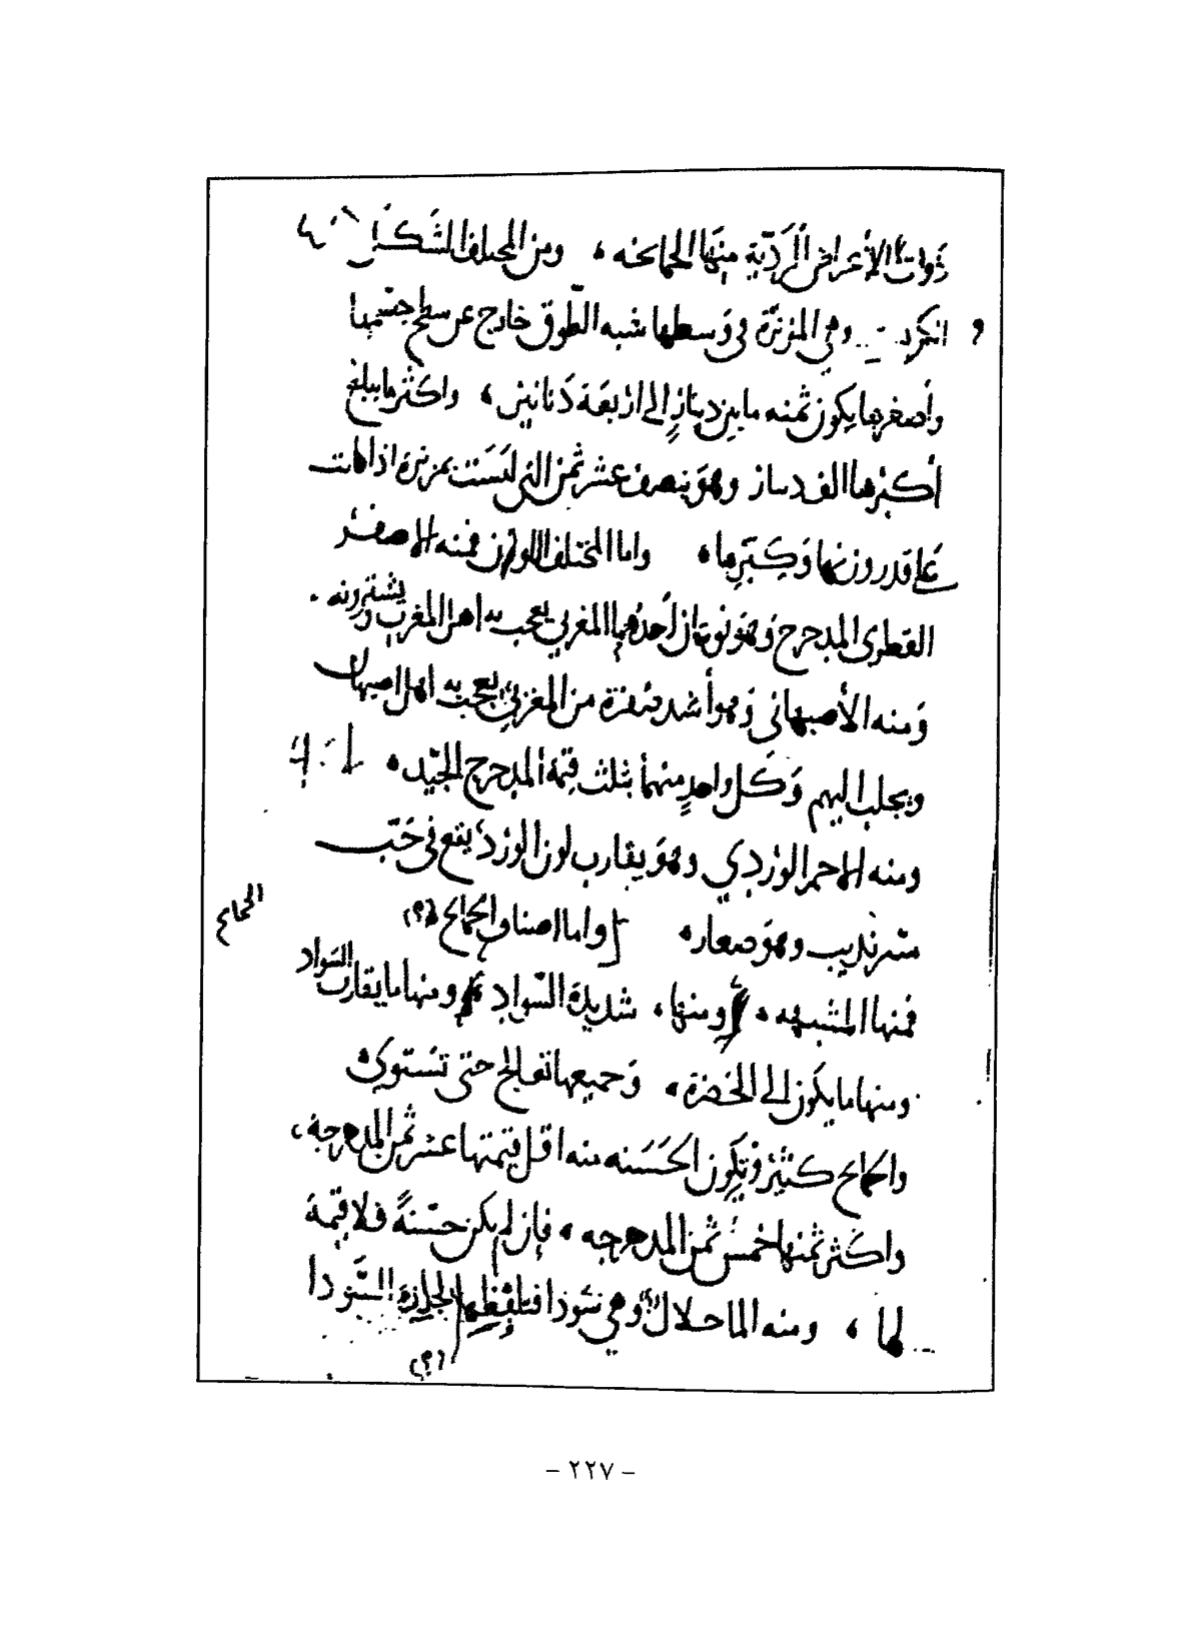 ذوات الأعراض الرديّة منها الجمايحه، ومن المختلف الشكل
وهي المزنرة في وسطها شبه الطوق خارج عن سطح جسمها
وأصغرها يكون ثمنه ما بين دينارٍ إلى اربعة دنانير، واكثر ما يبلغ
أكبرها الف دينار وهو نصف عشر ثمن التي ليست بمزنرة اذا كانت
على قدر وزنها وكبرها، واما المختلف اللون فمنه الاصفر
القطري المدحرج وهو نوعان أحدهما المغربي يعجب به اهل المغرب ويشترونه
ومنه الأصبهاني وهو أشد صفرة من المغربي يعجب به اهل اصبهان
ويجلب اليهم وكل واحدٍ منهما بثلث قيمة المدحرج الجيّد،
ومنه الاحمر الوردي وهو يقارب لون الورد يقع في حبّ
سرنديب وهو صغار، واما اصناف الجمايح (؟)
الجماع
فمنها المشبهه، ومنها، شديدة السّواد ومنها ما يقارب السواد
ومنها ما يكون الى الخضرة، وجميعها تعالج حتى تستوي
والجمايح كثيرة وتكون الحسنه منه اقل قيمتها عشر ثمن المدحرجة،
واكثر ثمنها خمس ثمن المدحرجه، فإن لم يكن حسنةً فلا قيمة
لها، ومنه وهي السّودا
(؟)
- ٢٢٧ -